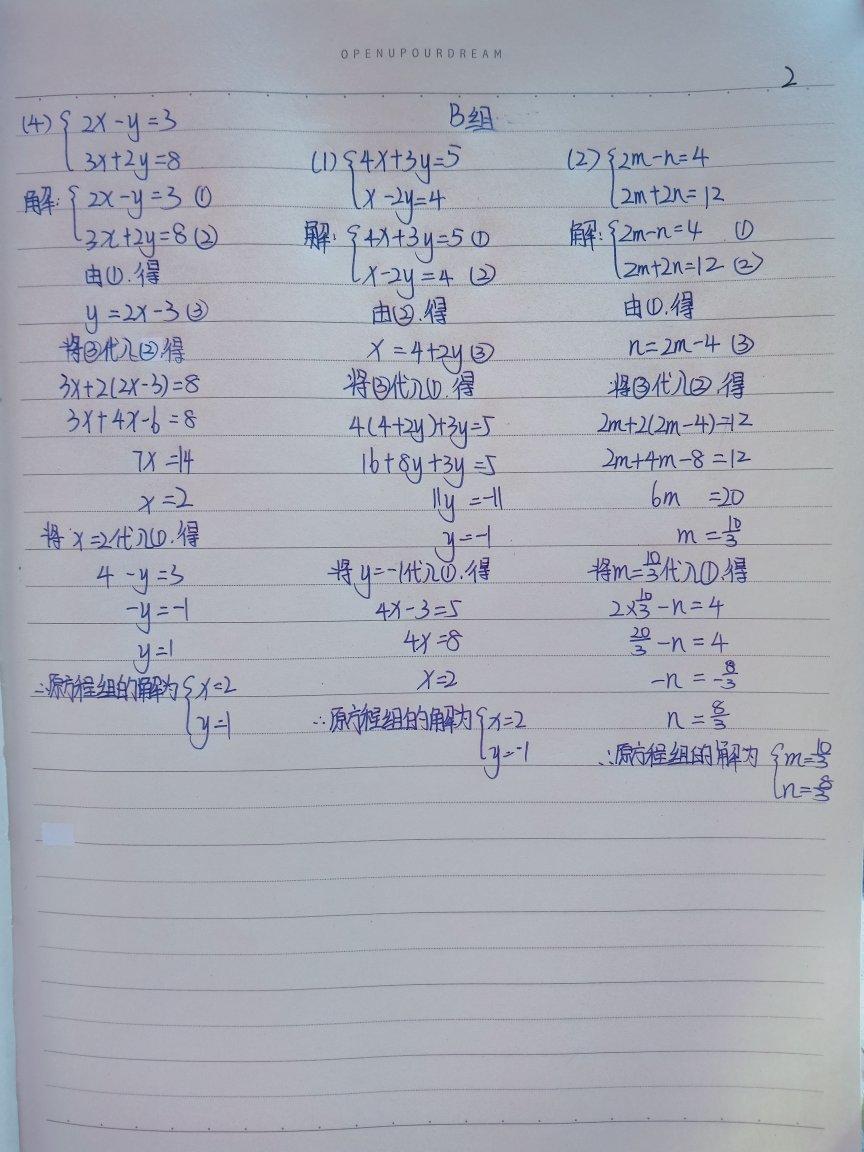 OPENUPOURDREAM
2
(4) { 2x-y=3
3x+2y=8
解: { 2x-y=3 ①
3x+2y=8 ②
由①.得
y=2x-3 ③
将③代入②.得
3x+2(2x-3)=8
3x+4x-6=8
7x=14
x=2
将x=2代入①.得
4-y=3
-y=-1
y=1
∴原方程组的解为 { x=2
y=1
B组
(1) { 4x+3y=5
x-2y=4
解: { 4x+3y=5 ①
x-2y=4 ②
由②.得
x=4+2y ③
将③代入①.得
4(4+2y)+3y=5
16+8y+3y=5
11y=-11
y=-1
将y=-1代入①.得
4x-3=5
4x=8
x=2
∴原方程组的解为 { x=2
y=-1
(2) { 2m-n=4
2m+2n=12
解: { 2m-n=4 ①
2m+2n=12 ②
由①.得
n=2m-4 ③
将③代入②.得
2m+2(2m-4)=12
2m+4m-8=12
6m =20
m=10/3
将m=10/3代入①.得
2×10/3-n=4
20/3-n=4
-n=-8/3
n=8/3
∴原方程组的解为 { m=10/3
n=8/3